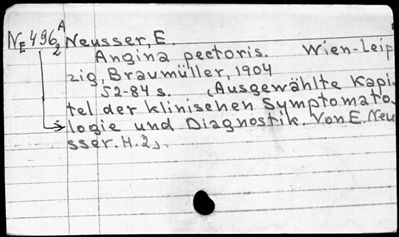 NE 496 A/2 Neusser, E.
Angina pectoris. Wien-Leip
zig, Braumüller, 1904
52-84 s. (Ausgewählte Kapi
tel der klinischen Symptomato
logie und Diagnostik. Von E. Neu
sser. H. 2).